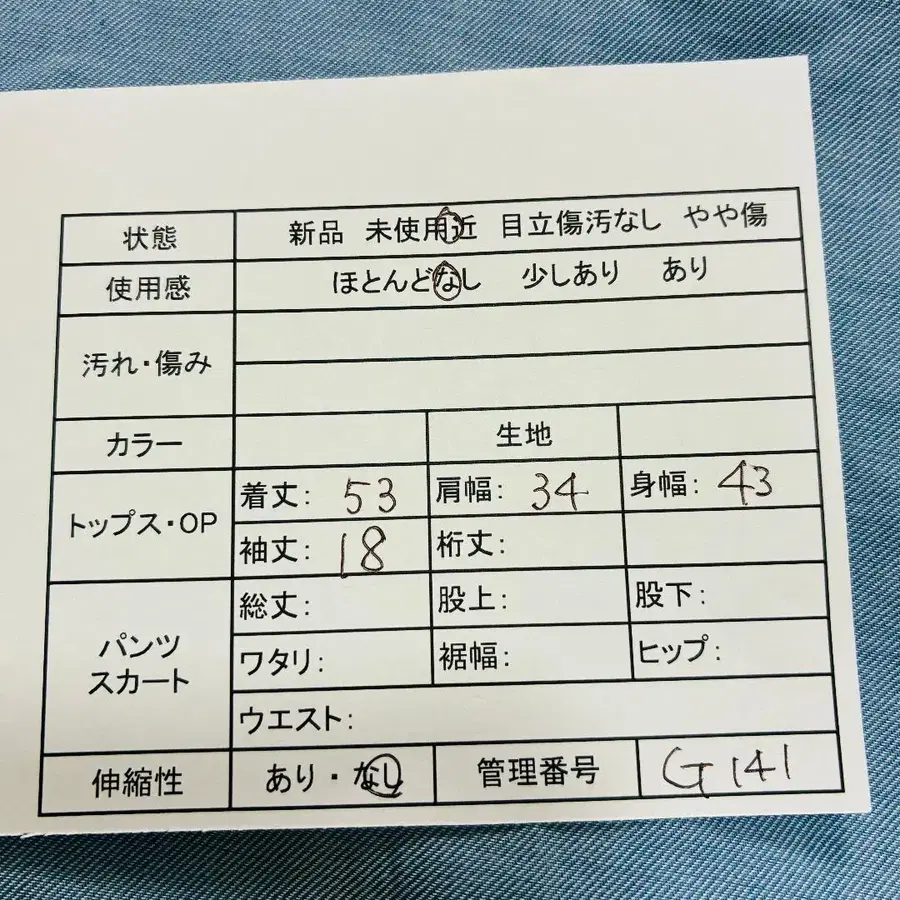 状態 新品 未使用近 目立傷汚なし やや傷
使用感 ほとんどなし 少しあり あり
汚れ・傷み
カラー 生地
トップス・OP
着丈: 53 肩幅: 34 身幅: 43
袖丈: 18 裄丈:
パンツ
スカート
総丈: 股上: 股下:
ワタリ: 裾幅: ヒップ:
ウエスト:
伸縮性 あり・なし 管理番号 G141